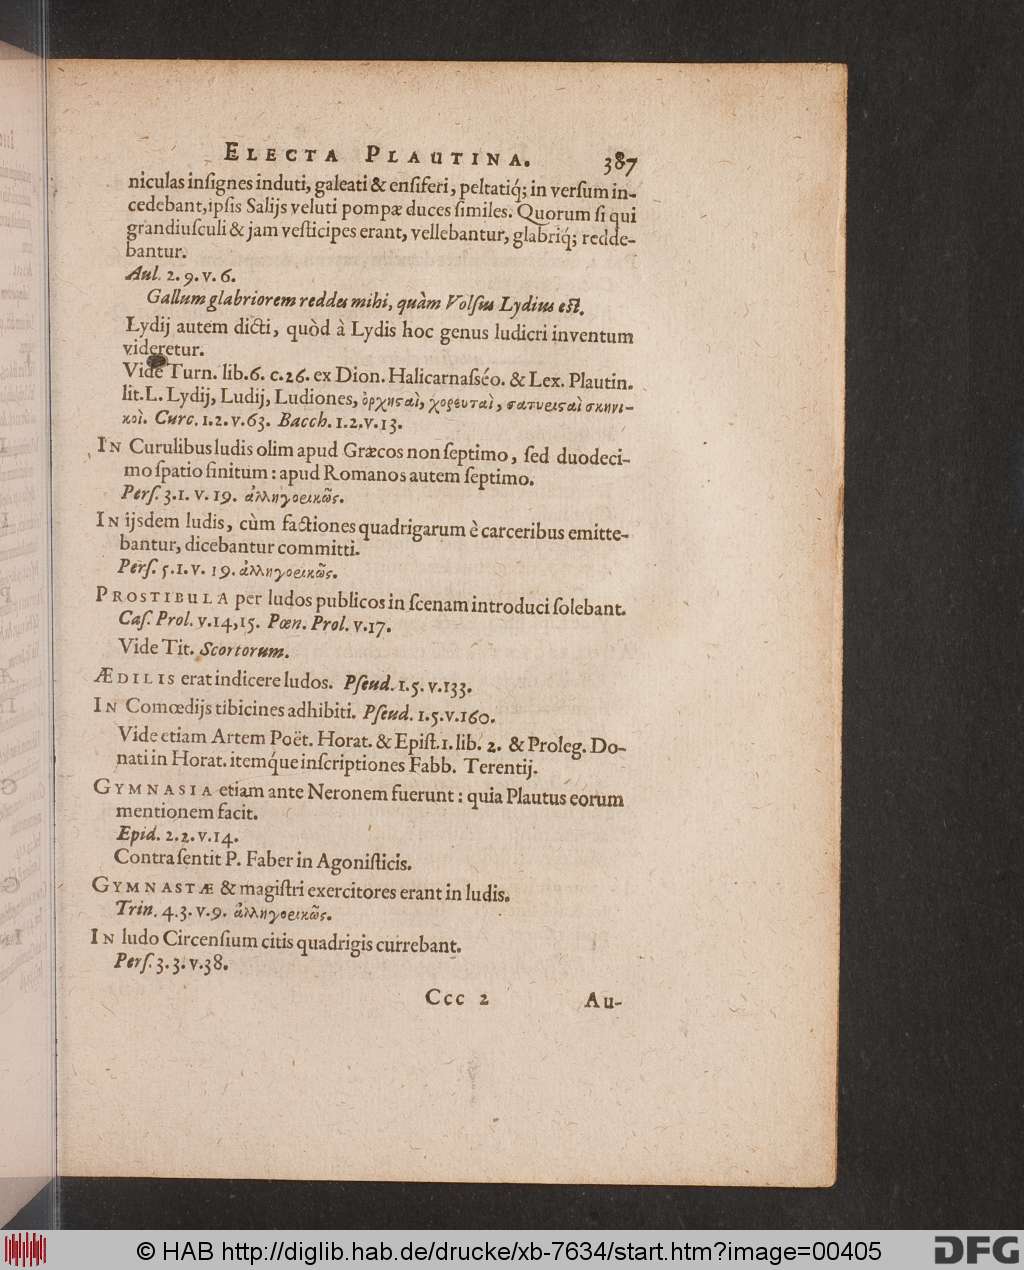 ELECTA PLAUTINA. 387
niculas insignes induti, galeati & ensiferi, peltatiq́; in versum in-
cedebant, ipsis Salijs veluti pompæ duces similes. Quorum si qui
grandiusculi & jam vesticipes erant, vellebantur, glabriq́; redde-
bantur.
Aul. 2. 9. v. 6.
Gallum glabriorem reddes mihi, quàm Volsius Lydius est.
Lydij autem dicti, quòd à Lydis hoc genus ludicri inventum
videretur.
Vide Turn. lib. 6. c. 26. ex Dion. Halicarnasséo. & Lex. Plautin.
lit. L. Lydij, Ludij, Ludiones, ὀρχηϛαὶ, χορευταὶ, σατυριϛαὶ σκηνι-
κοὶ. Curc. 1. 2. v. 63. Bacch. 1. 2. v. 13.
IN Curulibus ludis olim apud Græcos non septimo, sed duodeci-
mo spatio finitum: apud Romanos autem septimo.
Pers. 3. 1. v. 19. ἀλληγορικῶς.
IN ijsdem ludis, cùm factiones quadrigarum è carceribus emitte-
bantur, dicebantur committi.
Pers. 5. 1. v. 19. ἀλληγορικῶς.
PROSTIBULA per ludos publicos in scenam introduci solebant.
Cas. Prol. v. 14, 15. Pœn. Prol. v. 17.
Vide Tit. Scortorum.
ÆDILIS erat indicere ludos. Pseud. 1. 5. v. 133.
IN Comœdijs tibicines adhibiti. Pseud. 1. 5. v. 160.
Vide etiam Artem Poët. Horat. & Epist. 1. lib. 2. & Proleg. Do-
nati in Horat. itemq́ue inscriptiones Fabb. Terentij.
GYMNASIA etiam ante Neronem fuerunt: quia Plautus eorum
mentionem facit.
Epid. 2. 2. v. 14.
Contra sentit P. Faber in Agonisticis.
GYMNASTÆ & magistri exercitores erant in ludis.
Trin. 4. 3. v. 9. ἀλληγορικῶς.
IN ludo Circensium citis quadrigis currebant.
Pers. 3. 3. v. 38.
Ccc 2 Au-
© HAB http://diglib.hab.de/drucke/xb-7634/start.htm?image=00405
DFG